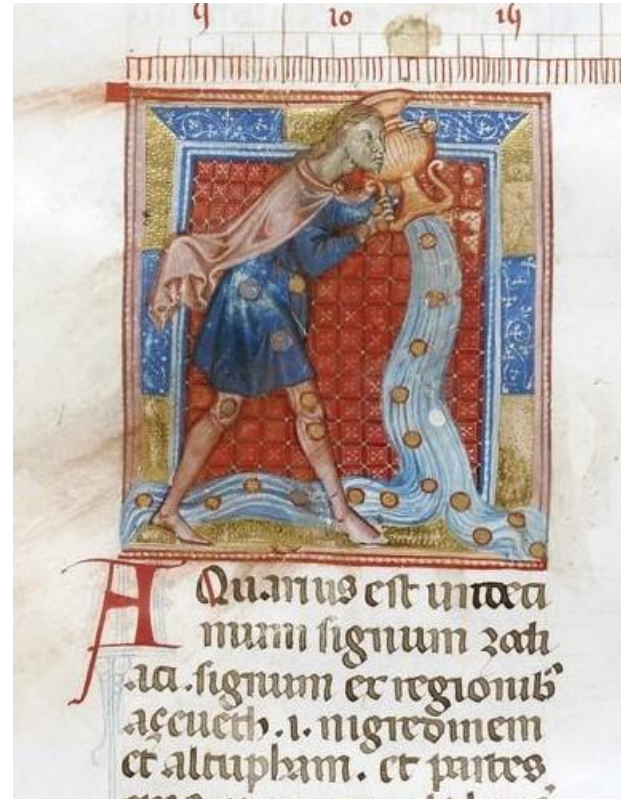 9 10 14
AQuarius est undeci
mum signum zodi
aci. signum ex regionib᾽
açeueth .i. nigredinem
et altupham. et partes